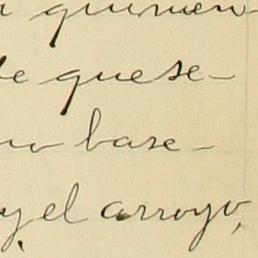 quinien-
de que se-
no base-
y el arroyo,